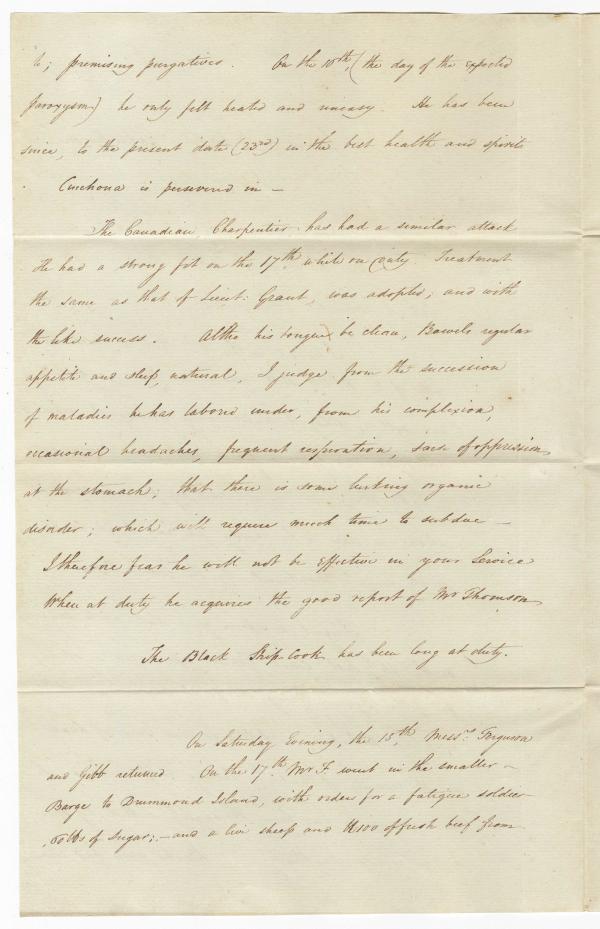 to; premising purgatives. On the 10th, (the day of the expected
paroxysm) he only felt heated and uneasy. He has been
since, to the present date (23rd) in the best health and spirits
Cinchona is persevered in —
The Canadian, Charpentier has had a similar attack
He had a strong fit on the 17th while on duty. Treatment
the same as that of Lieut: Grant, was adopted; and with
the like success. Altho his tongue be clean, Bowels regular
appetite and sleep, natural, I judge from the succession
of maladies he has labored under, from his complexion,
occasional headaches, frequent respiration, of oppression
at the stomach; that there is some lurking organic
disorder; which will require much time to subdue —
I therefore fear he will not be effective in your Service
When at duty he acquires the good report of Mr Thomson
The Black Ship cook has been long at duty.
On Saturday Evening, the 15th, Messrs Ferguson
and Gibb returned. On the 17th Mr F. went in the smaller —
Barge to Drummond Island, with order for a fatigue soldier
lbs of Sugar; — and a live sheep and 100 of fresh beef from